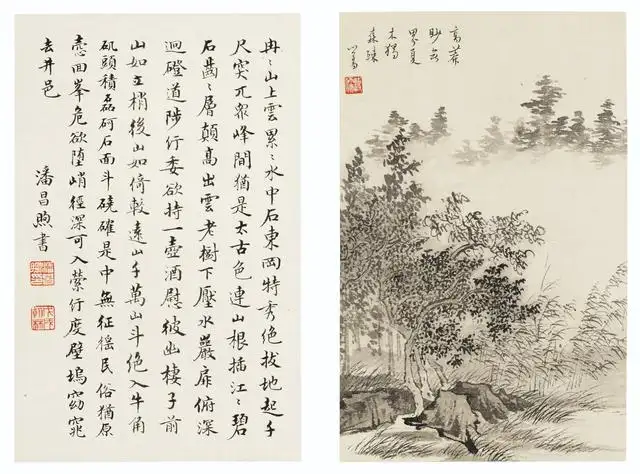 冉〻山上雲累〻水中石東岡特秀絶拔地起千
尺突兀衆峰間猶是太古色連山根插江〻碧
石齒〻層巔高出雲老樹下壓水巖扉俯深
迴磴道陟行委欲持一壺酒慰彼幽棲子前
山如立梢後山如倚較遠山千萬山斗絶入牛角
磯頭積磊砢石面斗磽確是中無征徭民俗猶原
慤回峯危欲墮峭徑深可入縈行度壁塢窈窕
去井邑
潘昌煦書
高莽
眇無
界夏
木獨
森疎
心畬